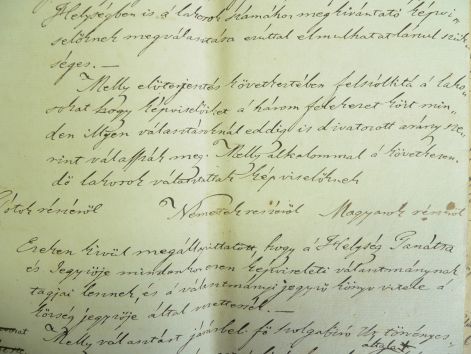 Helységben is a lakosok számához megkivántató képvi-
selőknek megválasztása ezuttal elmulhatatlanul szük-
séges. —
Melly előterjentés következtében felszólitá a lako-
sokat hogy képviselőiket a három felekezet közt min-
den illyen választásnál eddig is divatozott arány sze-
rint válasszák meg. Melly alkalommal a következen-
dő lakosok választattak képviselőknek
Tótok részéről Németek részéről Magyarok részéről
Ezeken kivül megállapittatott, hogy a Helység
és Jegyzője mindenkor ezen képviseleti választmánynak
tagjai lennének, és a választmányi jegyző könyv vitele a
község jegyzője által
Melly választást járásbeli fő szolgabiró Úr törvényes-